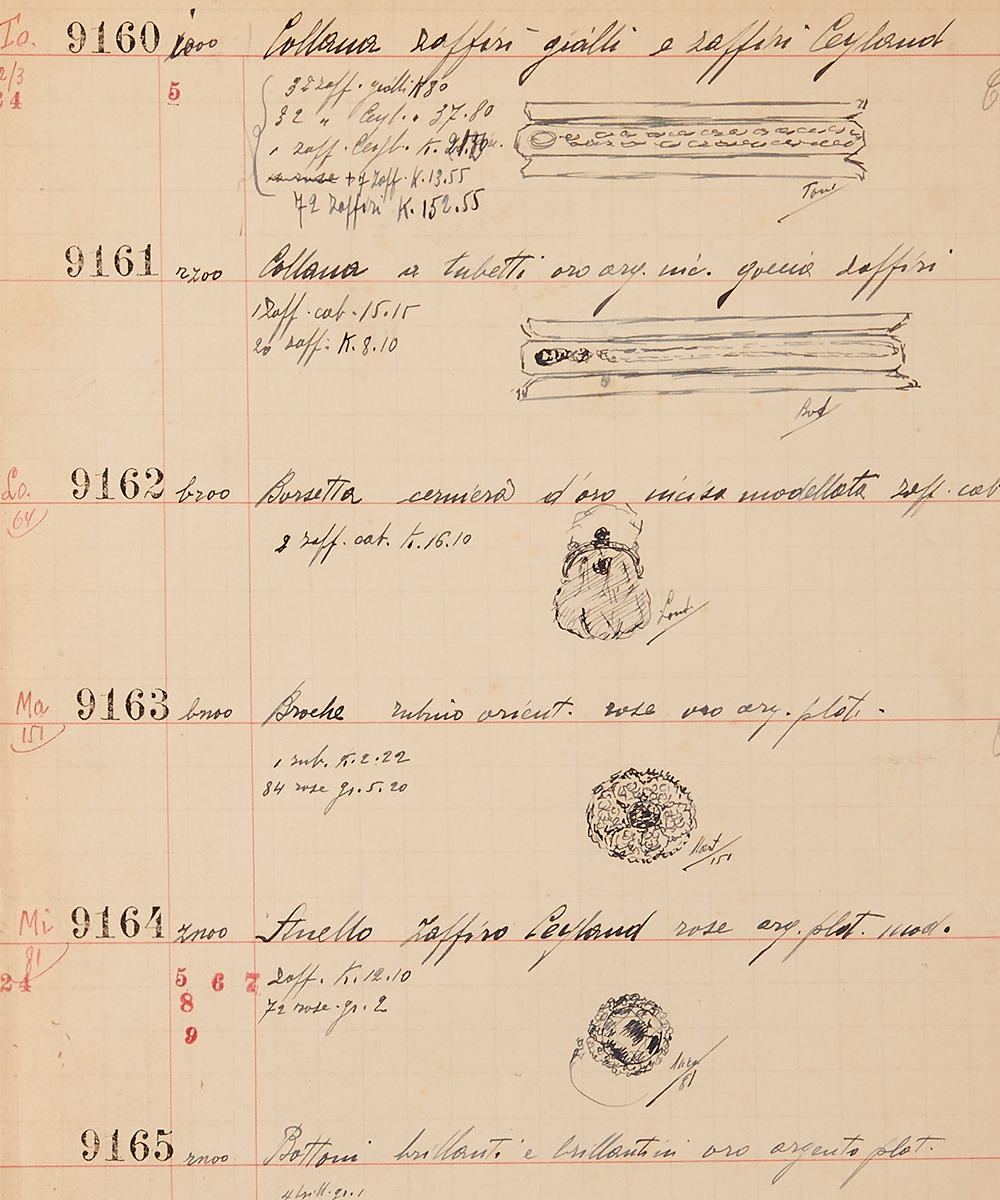 To. 9160 1000 Collana zaffiri gialli e zaffiri Ceyland
2/3
24 5
32 zaff. gialli K 80
32 " Ceyl. " 37.80
1 zaff. Ceyl. K.
+ 7 zaff. K. 13.55
72 Zaffiri K. 152.55
Tori
9161 rzoo Collana a tubetti oro arg. inc. goccia zaffiri
1 Zaff. cab. 15.15
20 zaff. K. 8.10
9162 broo Borsetta cerniera d'oro incisa modellata zaff. cab
Lo.
64
2 zaff. cab. K. 16.10
Lond.
Ma 9163 bnoo Broche rubino orient. rose oro arg. plat.
151
1 rub. K. 2.22
84 rose gr. 5.20
Mart
151
Mi 9164 znoo Anello Zaffiro Ceyland rose arg. plat. mod.
81
24 5 6 7
8
9
Zaff. K. 12.10
72 rose gr. 2
81
9165 rnoo Bottoni brillanti e brillantini oro argento plat.
4 brill. gr. 1